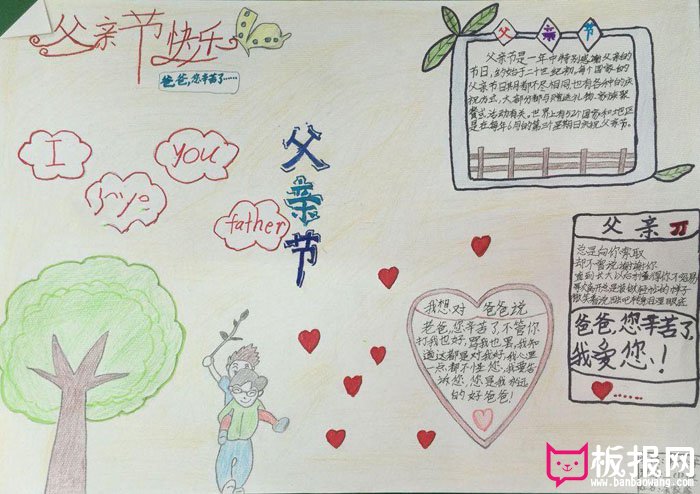 父亲节快乐
爸爸,您辛苦了……
I
you
father
父亲节
父 亲 节
父亲节是一年中特别感谢父亲的
节日,约始于二十世纪初,每个国家的
父亲节日期都不尽相同,也有各种的庆
祝方式,大部分都与赠送礼物、家族聚
餐或活动有关。世界上有52个国家和地区
是在每年6月的第三个星期日庆祝父亲节。
父亲
总是向你索取
却不曾说谢谢你
直到长大以后才懂得你不容易
爸爸,您辛苦了,
我爱您!
……
我想对 爸爸说
老爸,您辛苦了,不管你
打我也好,骂我也罢,我知
道这都是对我好,我心里
一点都不怪您,我爱告
诉您,您是我永远
的好爸爸!
板报网
www.banbaowang.com